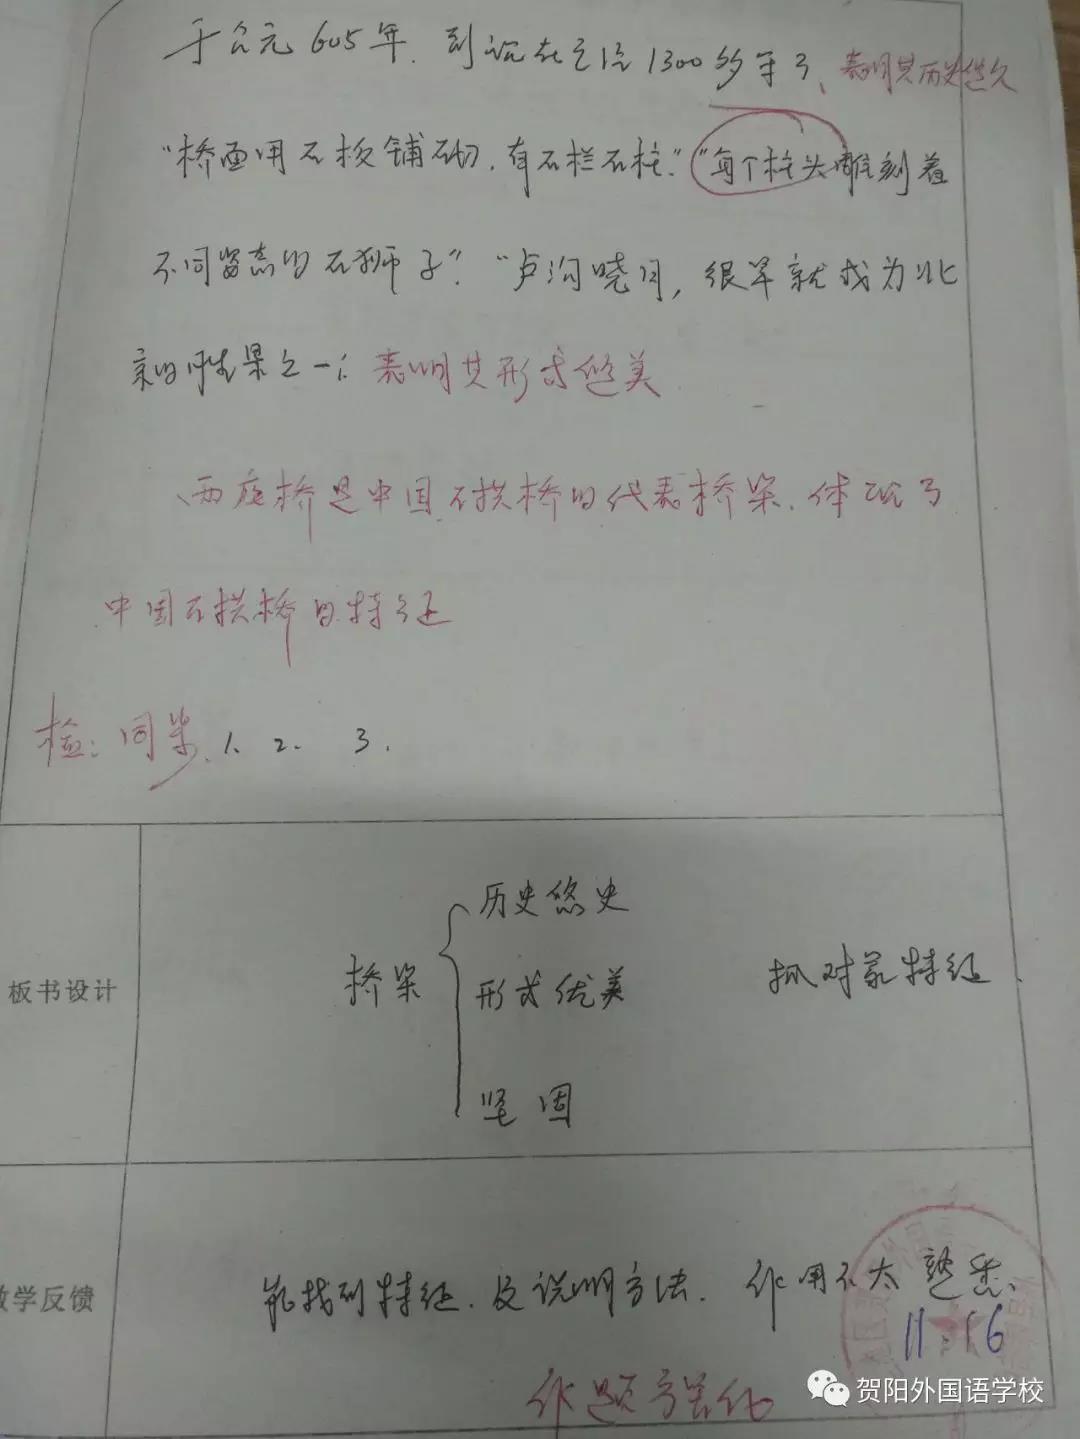 于公元605年，到现在已经1300多年了、表明其历史悠久
“桥面用石板铺砌，有石栏石柱”“每个柱头雕刻着
不同姿态的石狮子”“卢沟晓月，很早就成为北
京的胜景之一”表明其形式优美
两座桥是中国石拱桥的代表桥梁，体现了
中国石拱桥的特征
检：同步 1、2、3、
历史悠史
桥梁 形式优美 抓对象特征、
坚固
板书设计
能找到特征、及说明方法、作用不太熟悉、
学反馈
11.16
作题
贺阳外国语学校